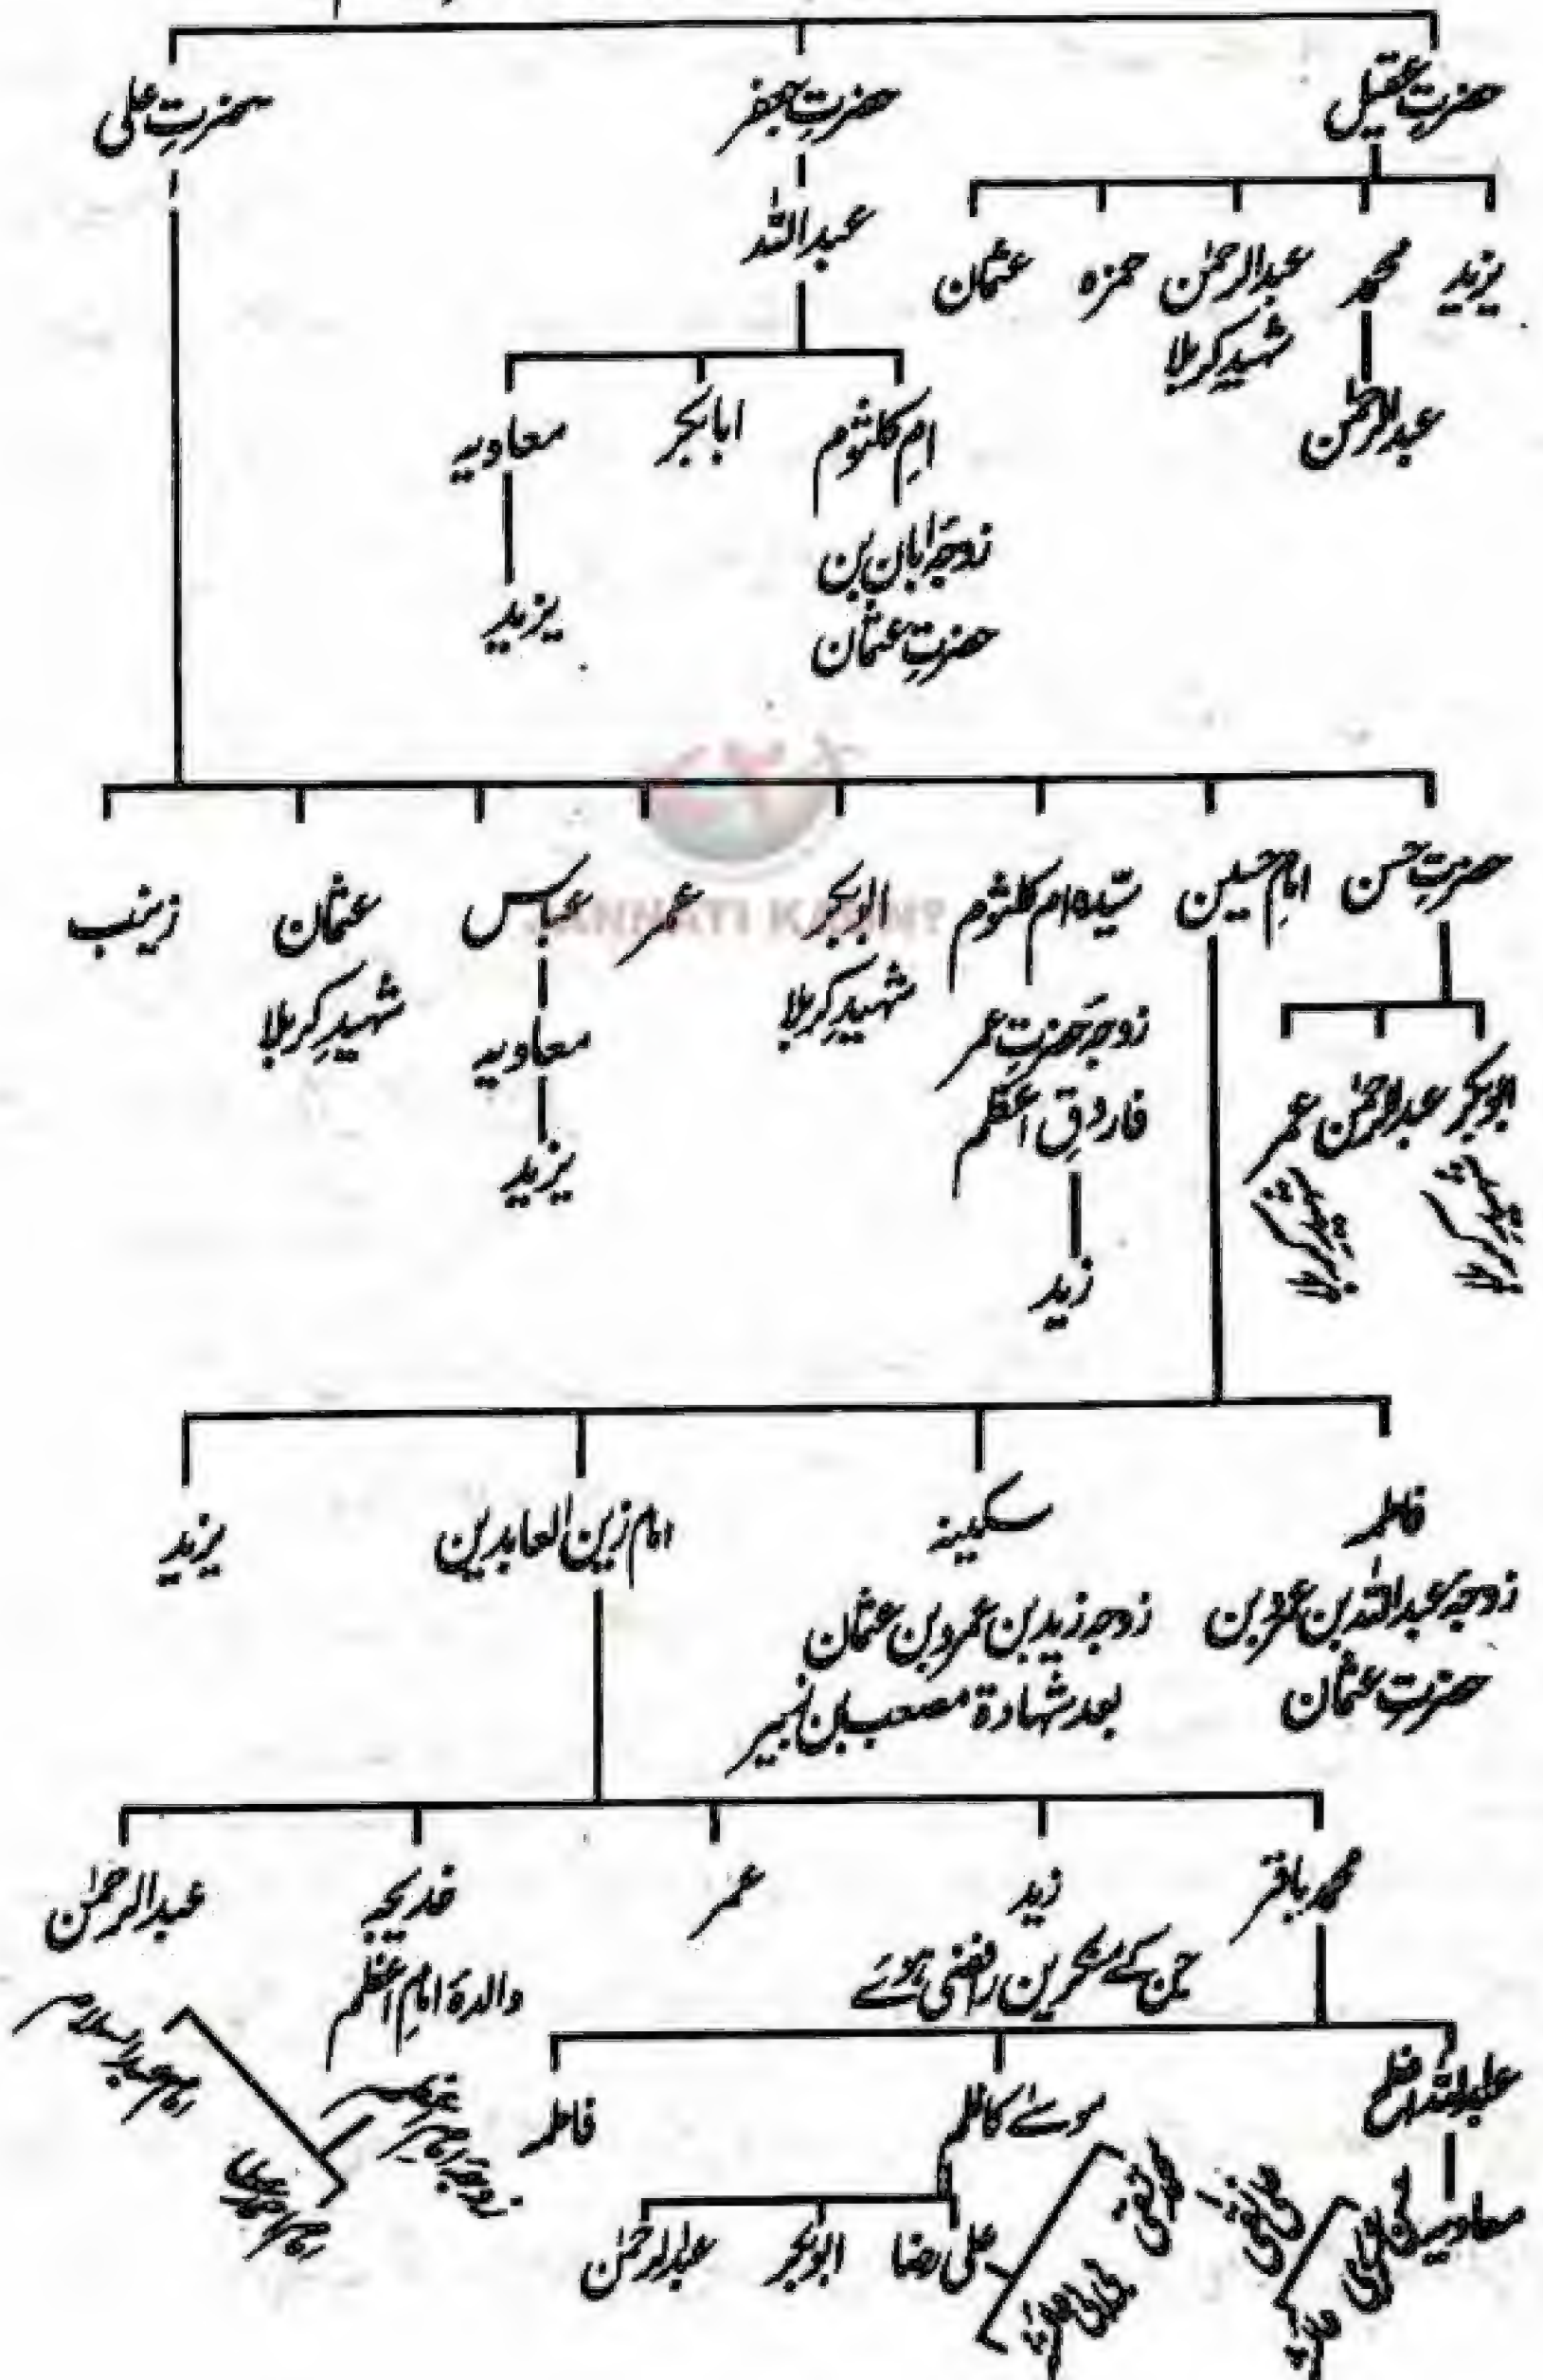 حضرتِ عقیل
حضرتِ جعفر
حضرتِ علی
یزید
محمد
عبدالرحمٰن
شہیدِ کربلا
حمزہ
عثمان
عبدالرحمٰن
عبداللہ
امِ کلثوم
زوجۂ ابان بن
حضرتِ عثمان
ابابکر
معاویہ
یزید
حضرتِ حسن
امامِ حسین
سیّدہ ام کلثوم
زوجۂ حضرتِ عمر
فاروقِ اعظم
زید
ابوبکر
شہیدِ کربلا
عمر
عباس
معاویہ
یزید
عثمان
شہیدِ کربلا
زینب
ابوبکر
شہیدِ کربلا
عبدالرحمٰن
عمر
شہیدِ کربلا
JANNATI KAUN?
فاطمہ
زوجۂ عبداللہ بن عمرو بن
حضرتِ عثمان
سکینہ
زوجہ زید بن عمرو بن عثمان
بعد شہادۃ مصعب بن
امام زین العابدین
یزید
محمد باقر
زید
جن کے منکرین رافضی ہوئے
عمر
خدیجہ
والدۂ امامِ اعظم
عبدالرحمٰن
عبداللہ افطح
معاویہ
موسےٰ کاظم
فاطمہ
علی رضا
ابوبکر
عبدالرحمٰن
محمد تقی
علی نقی